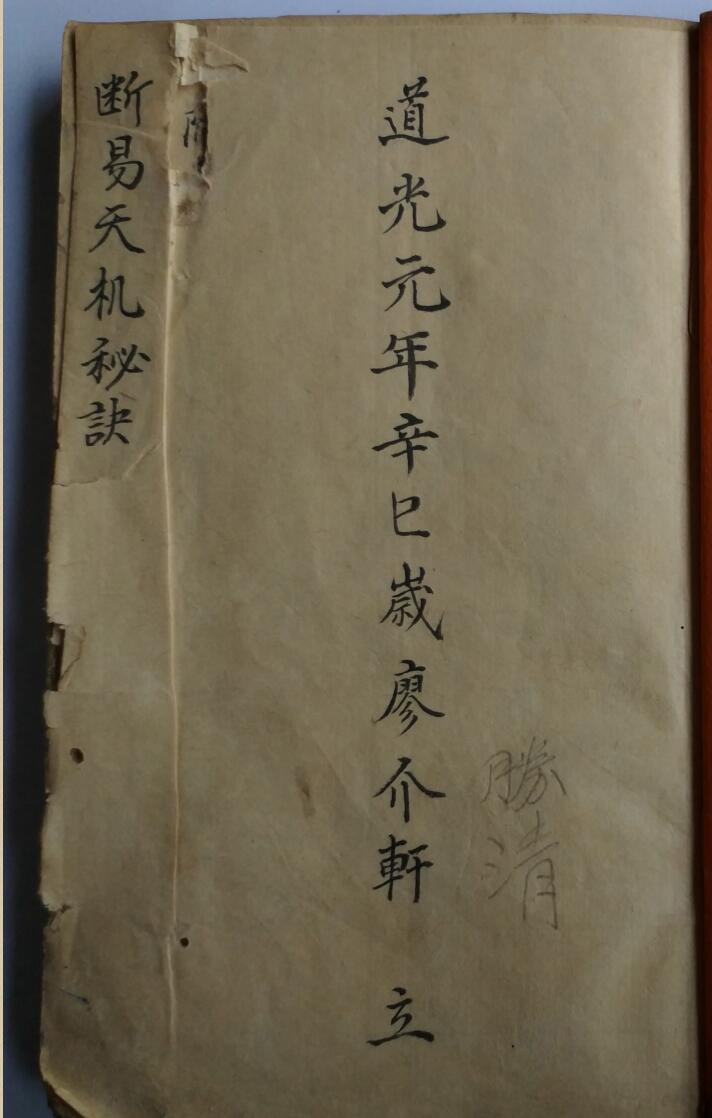 道光元年辛巳歲廖介軒 立
勝清
断易天机秘訣